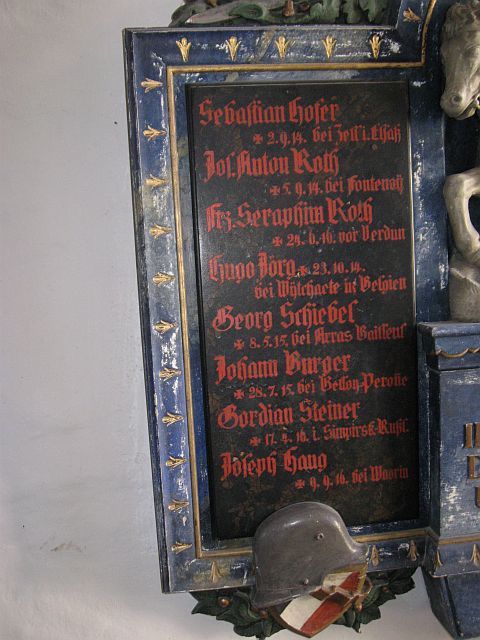 Sebastian Hofer
✠ 2.9.14. bei Zell i. Elsaß
Jos. Anton Roth
✠ 5.9.14. bei Fontenaÿ
Frz. Seraphim Roth
✠ 24.6.16. vor Verdun
Hugo Jörg ✠ 23.10.14.
bei Wÿtschaete in Belgien
Georg Schiebel
✠ 8.5.15. bei Arras
Johann Burger
✠ 28.7.15. bei
Gordian Steiner
✠ 17.4.16. i. Simpirsk-Rußl.
Joseph Haug
✠ 9.9.16. bei